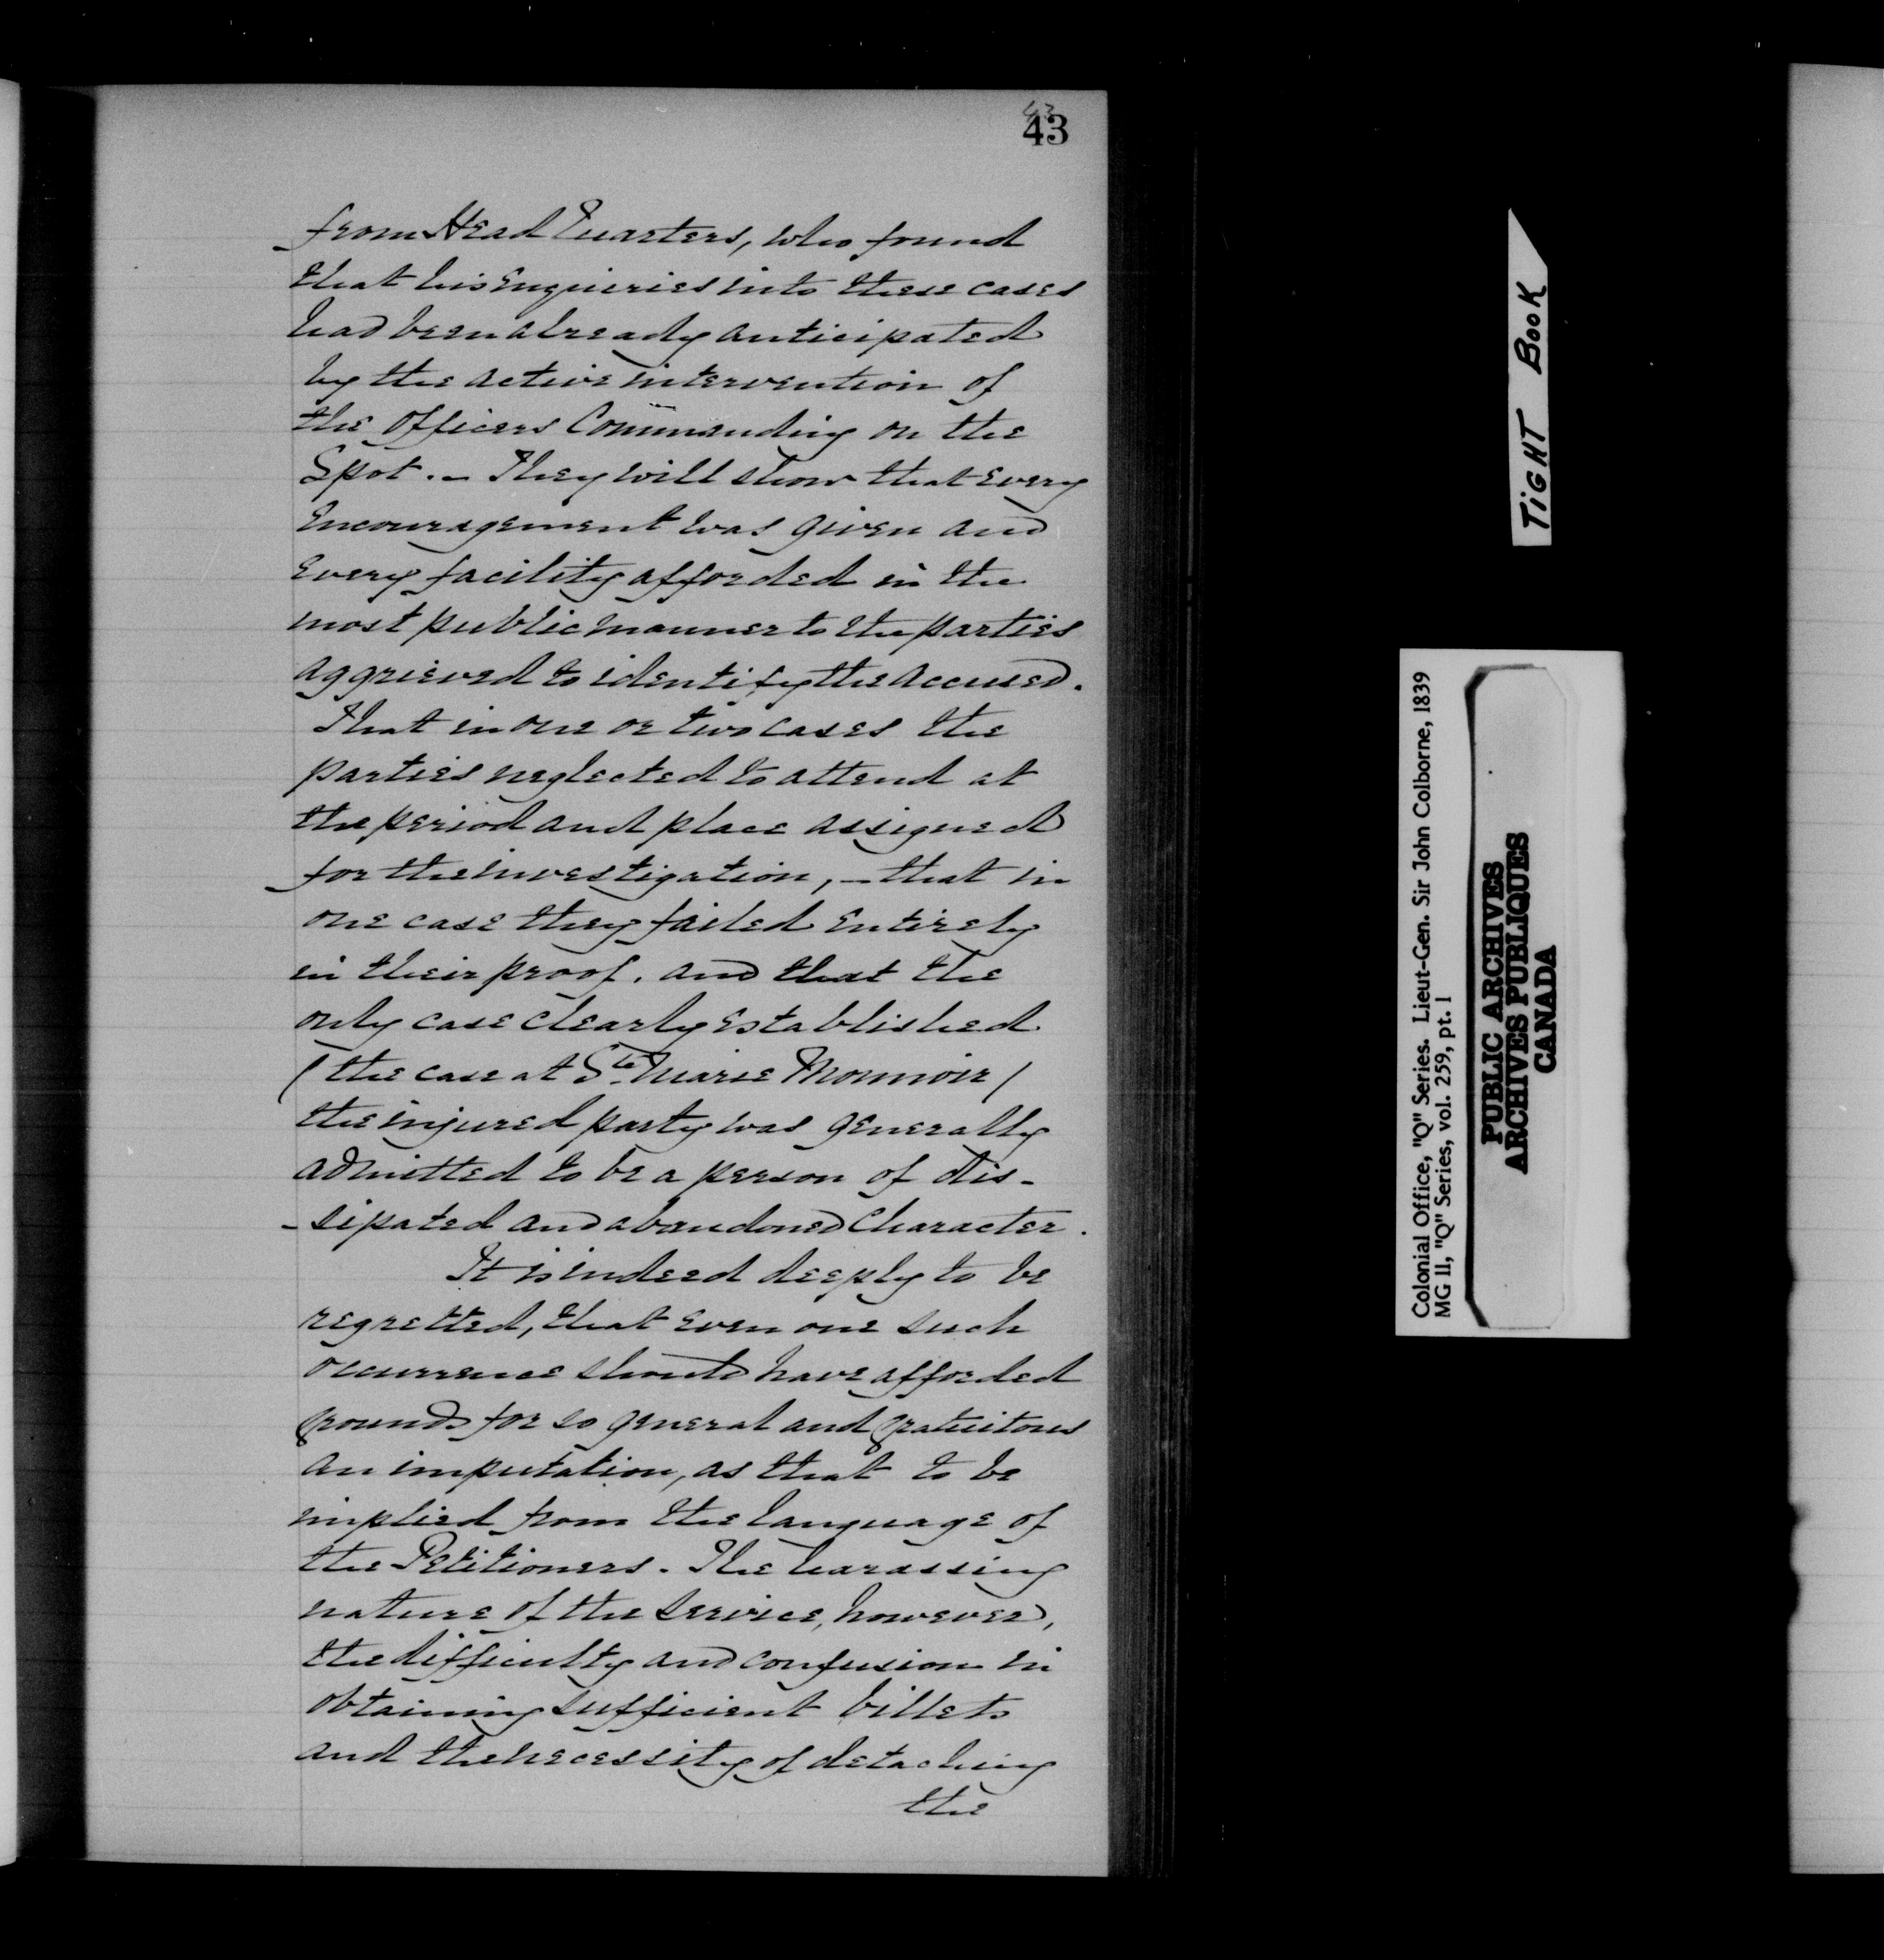 43
43
from Head Quarters, who found
that his enquiries into these cases
had been already anticipated
by the active intervention of
the Officers Commanding on the
Spot. – They will show that every
encouragement was given and
every facility afforded in the
most public manner to the parties
aggrieved to identify the accused.
That in one or two cases the
parties neglected to attend at
the period and place assigned
for the investigation, – that in
one case they failed entirely
in their proof, and that the
only case clearly established
(the case at Ste Marie Monnoir)
the injured party was generally
admitted to be a person of dis-
-sipated and abandoned Character.
It is indeed deeply to be
regretted, that even one such
occurrence should have afforded
grounds for so general and gratuitous
an imputation, as that to be
implied from the language of
the Petitioners. The harassing
nature of the Service, however,
the difficulty and confusion in
obtaining sufficient billets
and the necessity of detaching
the
TIGHT BOOK
Colonial Office, "Q" Series. Lieut-Gen. Sir John Colborne, 1839
MG 11, "Q" Series, vol. 259, pt. 1
PUBLIC ARCHIVES
ARCHIVES PUBLIQUES
CANADA